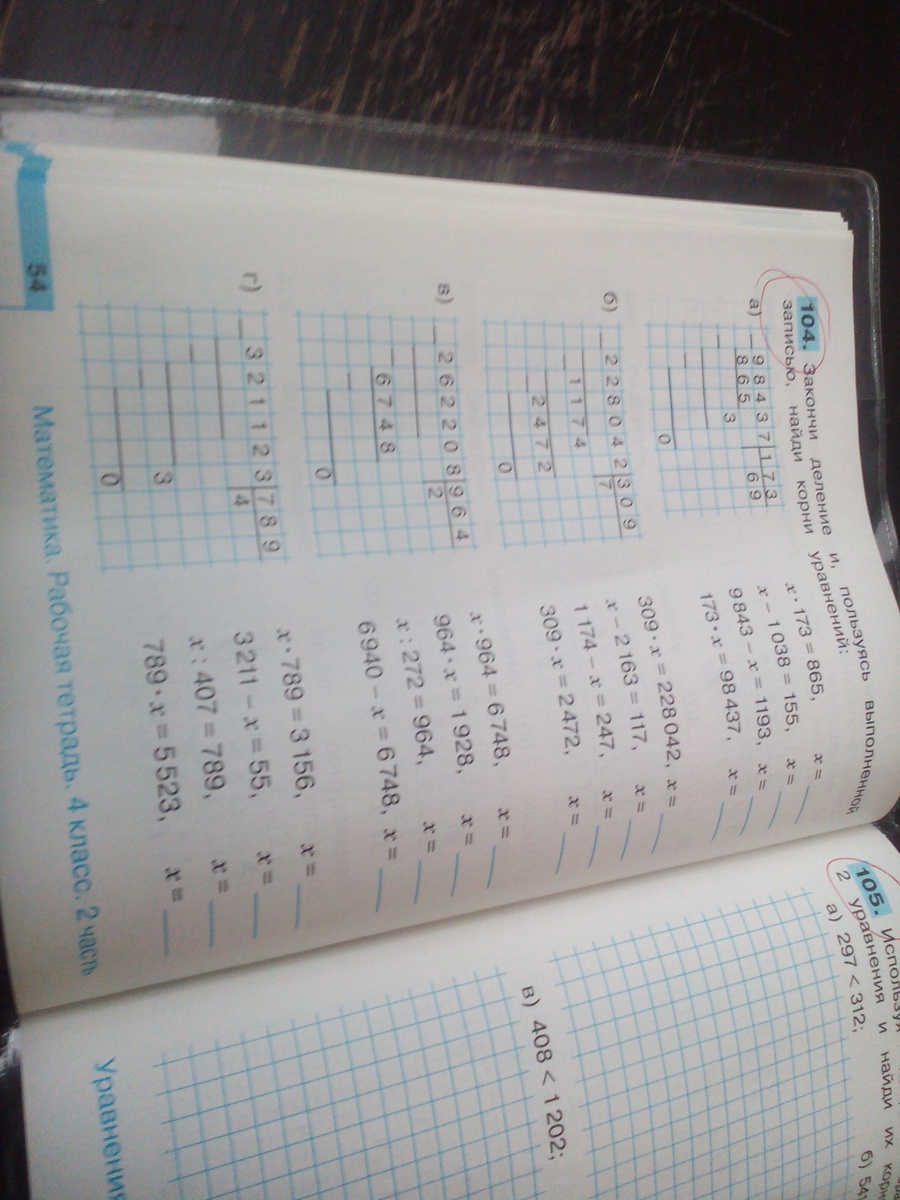 104. Закончи деление и, пользуясь выполненной
записью, найди корни уравнений:
а) 98437 173
865 69
3
0
x · 173 = 865, x =
x − 1038 = 155, x =
9843 − x = 1193, x =
173 · x = 98437, x =
б) 228042 309
7
1174
2472
0
309 · x = 228042, x =
x − 2163 = 117, x =
1174 − x = 247, x =
309 · x = 2472, x =
в) 262208 964
2
6748
0
x · 964 = 6748, x =
964 · x = 1928, x =
x : 272 = 964, x =
6940 − x = 6748, x =
г) 321123 789
4
3
0
x · 789 = 3156, x =
3211 − x = 55, x =
x : 407 = 789, x =
789 · x = 5523, x =
54
Математика. Рабочая тетрадь. 4 класс. 2 часть
105.
2 уравнения и найди их
а) 297 < 312;
б)
в) 408 < 1202;